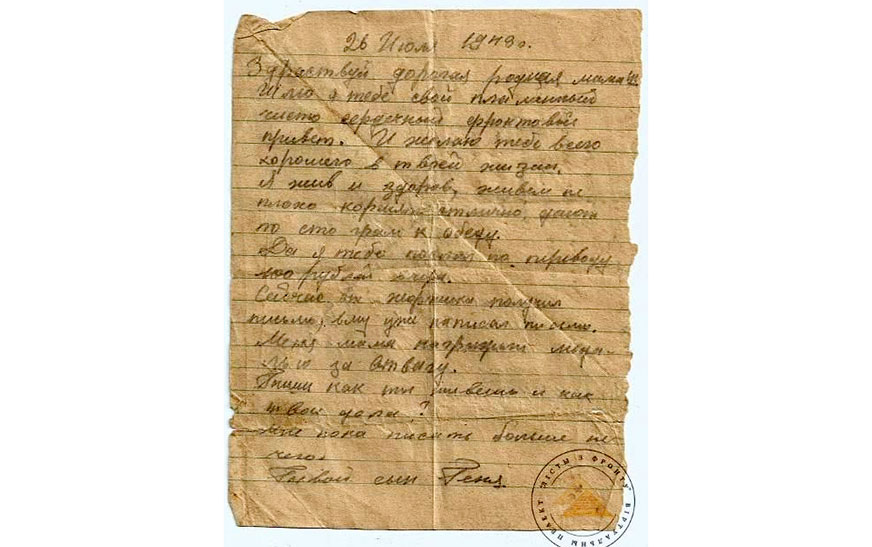 26 Июля 1943 г.
Здраствуй дорогая родная мама!
Шлю я тебе свой пламенный
чисто сердечный фронтовой
привет. И желаю тебе всего
хорошего в твоей жизни.
Я жив и здоров, живем не
плохо кормят отлично, дают
по сто грам к обеду.
Да я тебе послал по переводу
рублей вчера.
Сейчас от получил
письмо, ему уже написал письмо.
Меня мама наградили меда-
лью за Отвагу.
Пиши как ты живешь и как
твои дела?
Мне пока писать больше не
чего.
Твой сын Геня.
ЛІСТЫ З ФРОНТУ ВІРТУАЛЬНЫ ПРАЕКТ